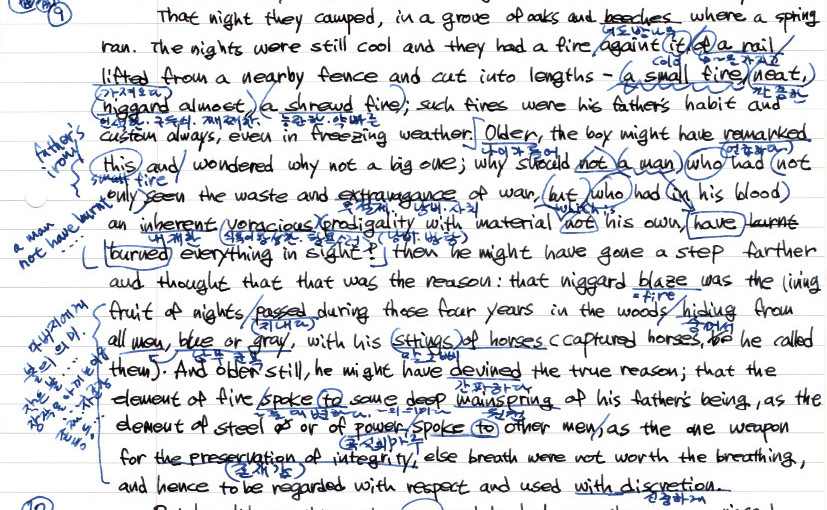 ⑨ That night they camped, in a grove of oaks and beeches where a spring
너도밤나무
ran. The nights were still cool and they had a fire againt it, of a rail
cold
lifted from a nearby fence and cut into lengths – a small fire, neat,
가져오다
깔끔한
niggard almost, a shrewd fire; such fires were his father's habit and
custom always, even in freezing weather. Older, the boy might have remarked
나이가 들어
언급하다
father's
irony
this and wondered why not a big one; why should not a man, who had not
small fire
only seen the waste and extravagance of war, but who had in his blood
무절제
낭비
사치
which is
an inherent voracious prodigality with material not his own, have burnt
내재한
낭비
방탕
a man
not have burnt
....
burned everything in sight? then he might have gone a step farther
and thought that that was the reason: that niggard blaze was the living
= fire
fruit of nights passed during those four years in the woods hiding from
지내다
숨어서
all men, blue or gray, with his strings of horses (captured horses, he called
남부 군복
them). And older still, he might have devined the true reason; that the
간파하다
아버지에게
불의 의미
element of fire spoke to some deep mainspring of his father's being, as the
원천
element of steel or of power spoke to other men, as the one weapon
for the preservation of integrity, else breath were not worth the breathing,
존재감
and hence to be regarded with respect and used with discretion.
신중하게
10